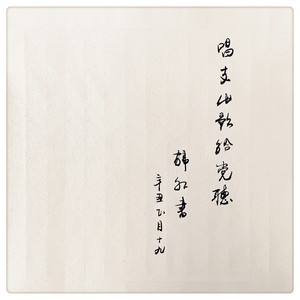 唱支山歌给党聽
韩红書
辛丑正月十九